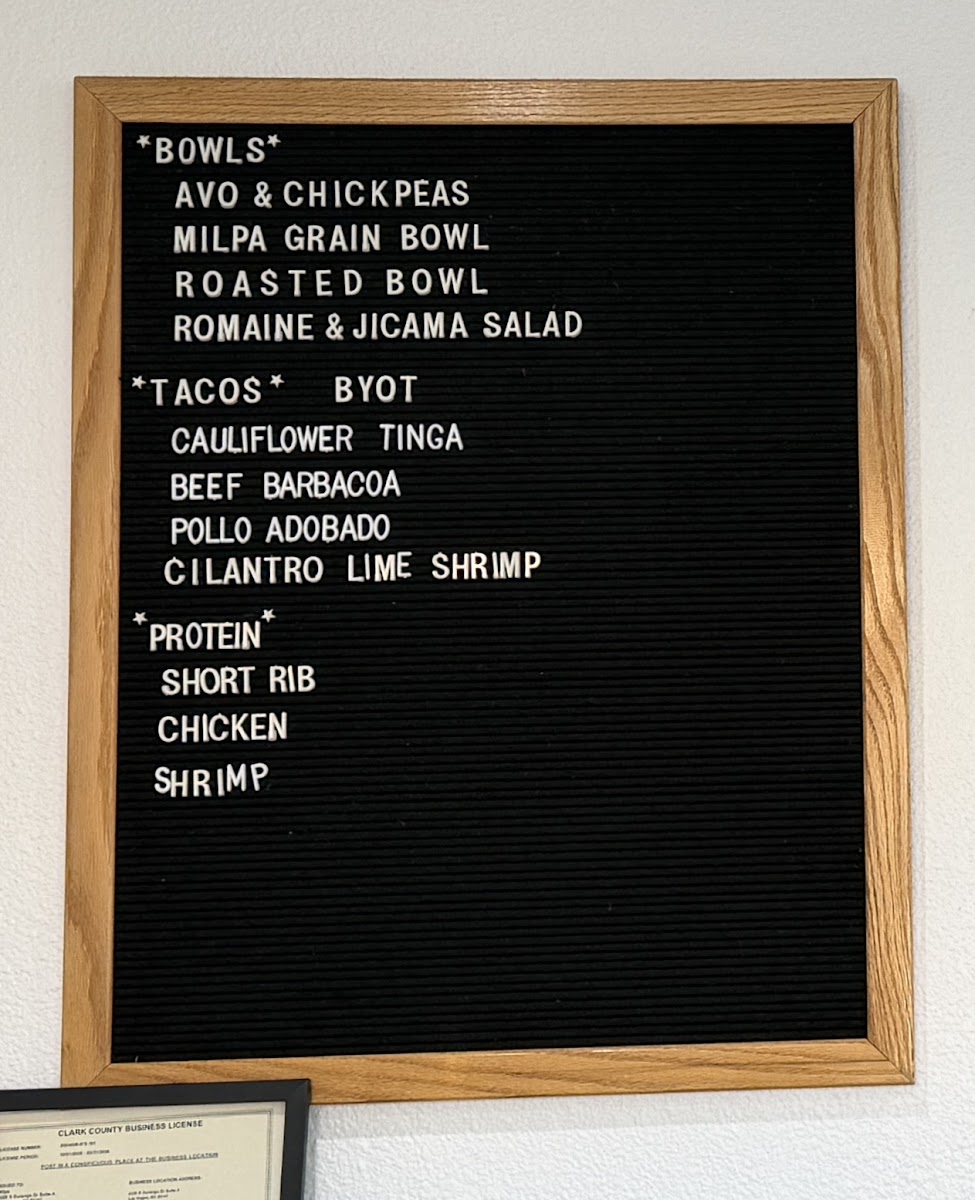 *BOWLS*
AVO & CHICKPEAS
MILPA GRAIN BOWL
ROASTED BOWL
ROMAINE & JICAMA SALAD
*TACOS* BYOT
CAULIFLOWER TINGA
BEEF BARBACOA
POLLO ADOBADO
CILANTRO LIME SHRIMP
*PROTEIN*
SHORT RIB
CHICKEN
SHRIMP
CLARK COUNTY BUSINESS LICENSE
LICENSE NUMBER:
LICENSE PERIOD:
POST IN A CONSPICUOUS PLACE AT THE BUSINESS LOCATION
BUSINESS LOCATION ADDRESS: